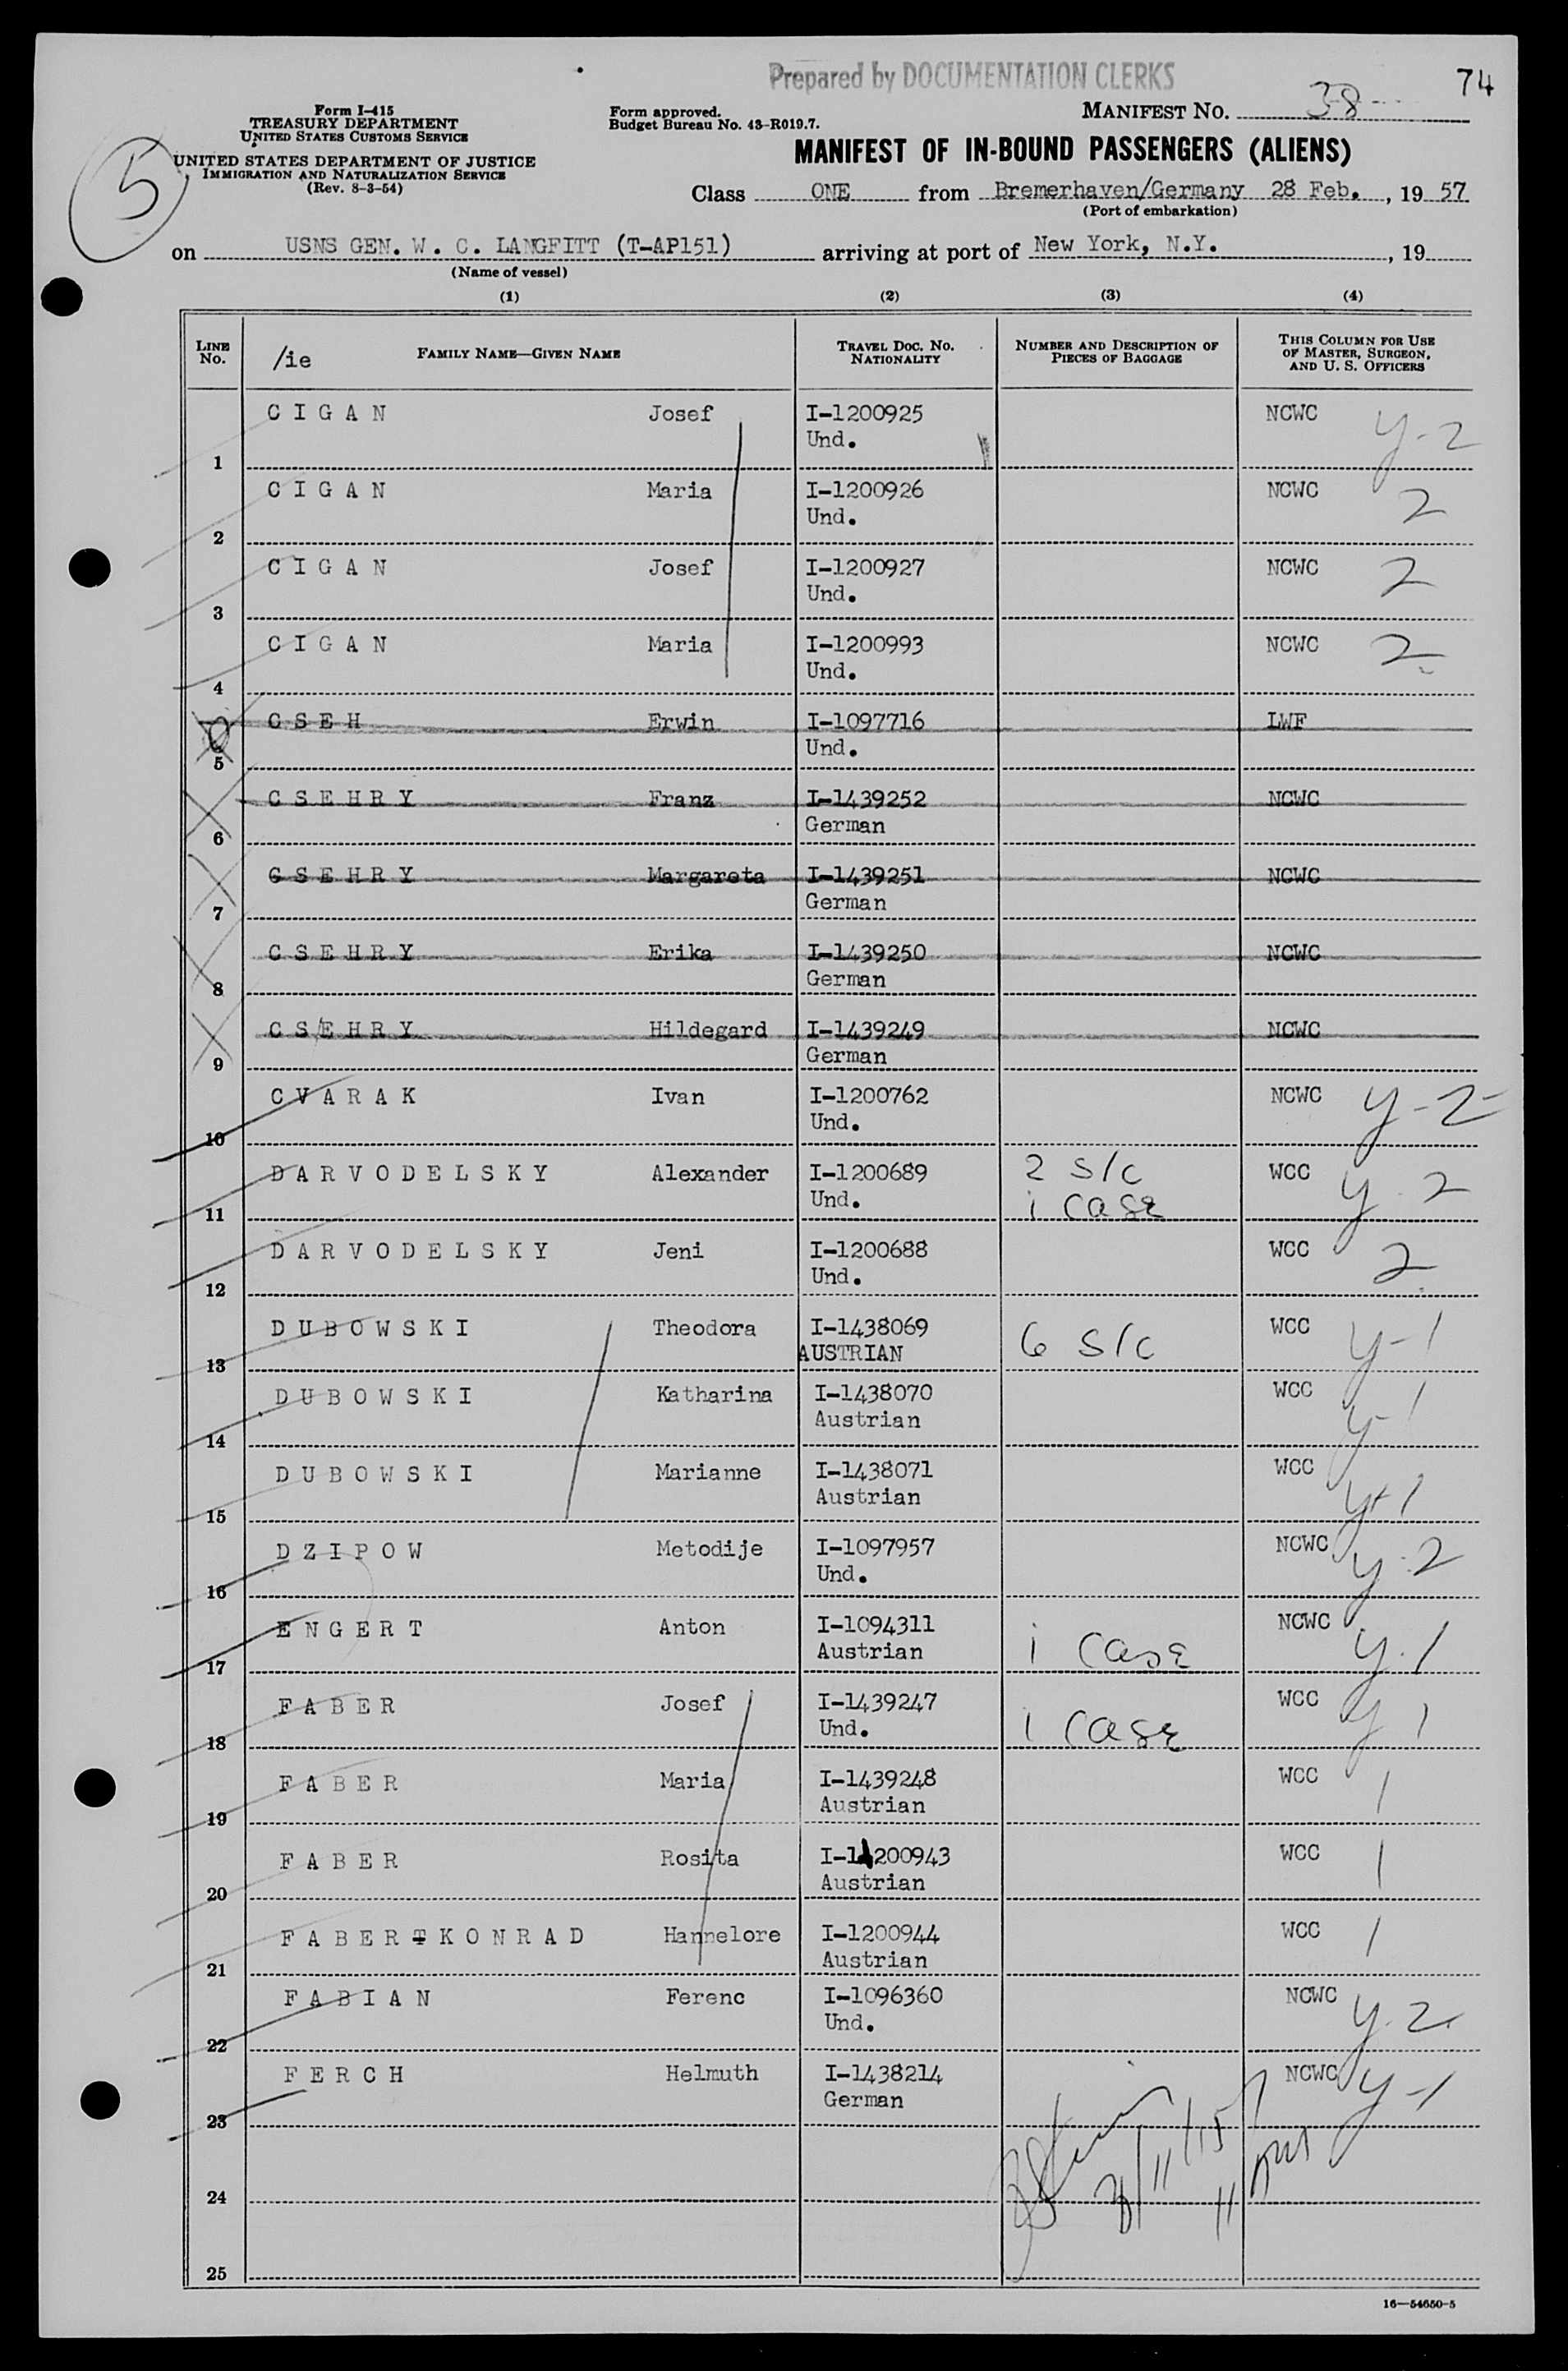 Prepared by DOCUMENTATION CLERKS
74
Form I-415
TREASURY DEPARTMENT
UNITED STATES CUSTOMS SERVICE
UNITED STATES DEPARTMENT OF JUSTICE
IMMIGRATION AND NATURALIZATION SERVICE
(Rev. 8-3-54)
5
Form approved.
Budget Bureau No. 43-R019.7.
MANIFEST NO. 38
MANIFEST OF IN-BOUND PASSENGERS (ALIENS)
Class ONE from Bremerhaven/Germany 28 Feb., 19 57
(Port of embarkation)
on USNS GEN. W. C. LANGFITT (T-AP151) arriving at port of New York, N.Y., 19
(Name of vessel)
(1) (2) (3) (4)
LINE No. /ie FAMILY NAME—GIVEN NAME TRAVEL DOC. NO. NATIONALITY NUMBER AND DESCRIPTION OF PIECES OF BAGGAGE THIS COLUMN FOR USE OF MASTER, SURGEON, AND U. S. OFFICERS
1 CIGAN Josef I-1200925 Und. NCWC y-2
2 CIGAN Maria I-1200926 Und. NCWC 2
3 CIGAN Josef I-1200927 Und. NCWC 2
4 CIGAN Maria I-1200993 Und. NCWC 2
5 CSEH Erwin I-1097716 Und. LWF
6 CSEHRY Franz I-1439252 German NCWC
7 CSEHRY Margareta I-1439251 German NCWC
8 CSEHRY Erika I-1439250 German NCWC
9 CSEHRY Hildegard I-1439249 German NCWC
10 CVARAK Ivan I-1200762 Und. NCWC y-2
11 DARVODELSKY Alexander I-1200689 Und. 2 S/C 1 case WCC y-2
12 DARVODELSKY Jeni I-1200688 Und. WCC 2
13 DUBOWSKI Theodora I-1438069 AUSTRIAN 6 S/C WCC y-1
14 DUBOWSKI Katharina I-1438070 Austrian WCC y-1
15 DUBOWSKI Marianne I-1438071 Austrian WCC y-1
16 DZIPOW Metodije I-1097957 Und. NCWC y-2
17 ENGERT Anton I-1094311 Austrian 1 case NCWC y-1
18 FABER Josef I-1439247 Und. 1 case WCC y 1
19 FABER Maria I-1439248 Austrian WCC 1
20 FABER Rosita I-1200943 Austrian WCC 1
21 FABER KONRAD Hannelore I-1200944 Austrian WCC 1
22 FABIAN Ferenc I-1096360 Und. NCWC y-2
23 FERCH Helmuth I-1438214 German NCWC y-1
24
25
16—54650-5